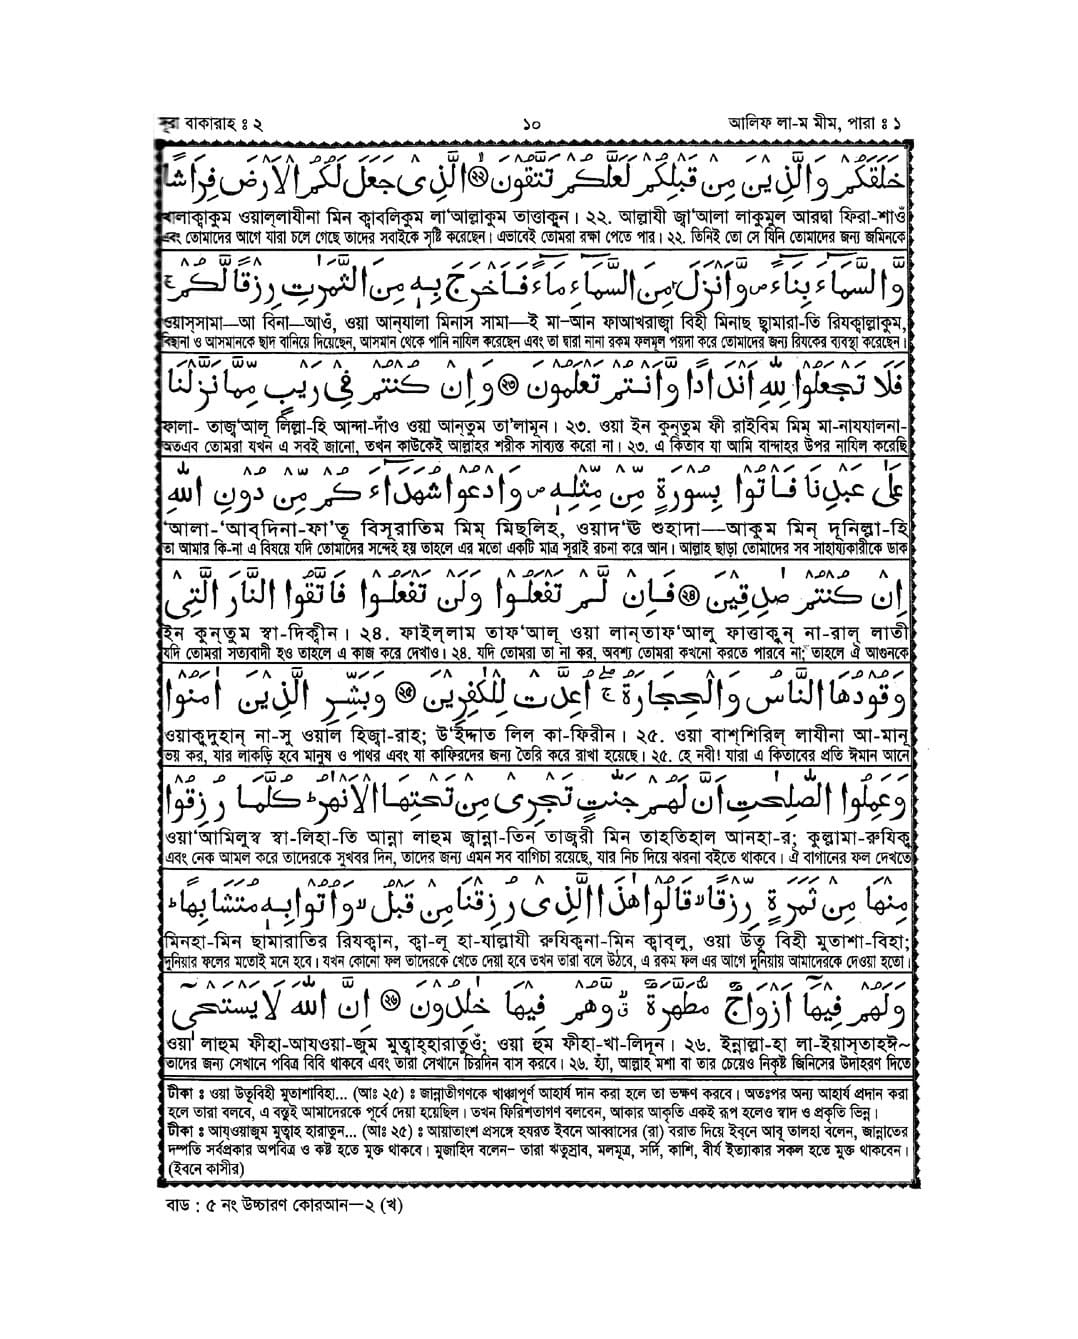 সূরা বাকারাহ ঃ ২ ১০ আলিফ লা-ম মীম, পারা ঃ ১
خَلَقَكُمْ وَالَّذِيْنَ مِنْ قَبْلِكُمْ لَعَلَّكُمْ تَتَّقُوْنَ ﴿۲۲﴾ الَّذِىْ جَعَلَ لَكُمُ الْاَرْضَ فِرَاشًا
খালাক্বাকুম ওয়াল্লাযীনা মিন ক্বাবলিকুম লা‘আল্লাকুম তাত্তাকুন। ২২. আল্লাযী জ্বা‘আলা লাকুমুল আরদ্বা ফিরা-শাওঁ
এবং তোমাদের আগে যারা চলে গেছে তাদের সবাইকে সৃষ্টি করেছেন। এভাবেই তোমরা রক্ষা পেতে পার। ২২. তিনিই তো সে যিনি তোমাদের জন্য জমিনকে
وَّالسَّمَآءَ بِنَآءً ص وَّاَنْزَلَ مِنَ السَّمَآءِ مَآءً فَاَخْرَجَ بِهٖ مِنَ الثَّمَرٰتِ رِزْقًا لَّكُمْ ج
ওয়াস্সামা—আ বিনা—আওঁ, ওয়া আন্যালা মিনাস সামা—ই মা–আন ফাআখরাজ্বা বিহী মিনাছ ছামারা-তি রিযক্বাল্লাকুম,
বিছানা ও আসমানকে ছাদ বানিয়ে দিয়েছেন, আসমান থেকে পানি নাযিল করেছেন এবং তা দ্বারা নানা রকম ফলমূল পয়দা করে তোমাদের জন্য রিযকের ব্যবস্থা করেছেন।
فَلَا تَجْعَلُوْا لِلّٰهِ اَنْدَادًا وَّاَنْتُمْ تَعْلَمُوْنَ ﴿۲۳﴾ وَاِنْ كُنْتُمْ فِىْ رَيْبٍ مِّمَّا نَزَّلْنَا
ফালা- তাজ্ব‘আলূ লিল্লা-হি আন্দা-দাঁও ওয়া আন্‌তুম তা‘লামূন। ২৩. ওয়া ইন কুন্‌তুম ফী রাইবিম মিম্ মা-নাযযালনা-
অতএব তোমরা যখন এ সবই জানো, তখন কাউকেই আল্লাহর শরীক সাব্যস্ত করো না। ২৩. এ কিতাব যা আমি বান্দাহর উপর নাযিল করেছি
عَلٰى عَبْدِنَا فَاْتُوْا بِسُوْرَةٍ مِّنْ مِّثْلِهٖ ص وَادْعُوْا شُهَدَآءَكُمْ مِّنْ دُوْنِ اللّٰهِ
‘আলা-‘আব্‌দিনা-ফা’তূ বিসূরাতিম মিম্ মিছলিহ, ওয়াদ‘ঊ শুহাদা—আকুম মিন্ দূনিল্লা-হি
তা আমার কি-না এ বিষয়ে যদি তোমাদের সন্দেহ হয় তাহলে এর মতো একটি মাত্র সূরাই রচনা করে আন। আল্লাহ ছাড়া তোমাদের সব সাহায্যকারীকে ডাক
اِنْ كُنْتُمْ صٰدِقِيْنَ ﴿۲۴﴾ فَاِنْ لَّمْ تَفْعَلُوْا وَلَنْ تَفْعَلُوْا فَاتَّقُوا النَّارَ الَّتِىْ
ইন কুন্‌তুম স্বা-দিক্বীন। ২৪. ফাইল্লাম তাফ‘আলূ ওয়া লান্‌তাফ‘আলু ফাত্তাকুন্ না-রাল্ লাতী
যদি তোমরা সত্যবাদী হও তাহলে এ কাজ করে দেখাও। ২৪. যদি তোমরা তা না কর, অবশ্য তোমরা কখনো করতে পারবে না; তাহলে ঐ আগুনকে
وَقُوْدُهَا النَّاسُ وَالْحِجَارَةُ ج اُعِدَّتْ لِلْكٰفِرِيْنَ ﴿۲۵﴾ وَبَشِّرِ الَّذِيْنَ اٰمَنُوْا
ওয়াকূদুহান্ না-সু ওয়াল হিজ্বা-রাহ; উ‘ইদ্দাত লিল কা-ফিরীন। ২৫. ওয়া বাশ্‌শিরিল্ লাযীনা আ-মানূ
ভয় কর, যার লাকড়ি হবে মানুষ ও পাথর এবং যা কাফিরদের জন্য তৈরি করে রাখা হয়েছে। ২৫. হে নবী! যারা এ কিতাবের প্রতি ঈমান আনে
وَعَمِلُوا الصّٰلِحٰتِ اَنَّ لَهُمْ جَنّٰتٍ تَجْرِىْ مِنْ تَحْتِهَا الْاَنْهٰرُ ط كُلَّمَا رُزِقُوْا
ওয়া‘আমিলুস্ব স্বা-লিহা-তি আন্না লাহুম জ্বান্না-তিন তাজ্বরী মিন তাহতিহাল আনহা-র; কুল্লামা-রুযিকূ
এবং নেক আমল করে তাদেরকে সুখবর দিন, তাদের জন্য এমন সব বাগিচা রয়েছে, যার নিচ দিয়ে ঝরনা বইতে থাকবে। ঐ বাগানের ফল দেখতে
مِنْهَا مِنْ ثَمَرَةٍ رِّزْقًا لا قَالُوْا هٰذَا الَّذِىْ رُزِقْنَا مِنْ قَبْلُ لا وَاُتُوْا بِهٖ مُتَشَابِهًا ط
মিনহা-মিন ছামারাতির রিযক্বান, ক্বা-লূ হা-যাল্লাযী রুযিক্বনা-মিন ক্বাব্‌লু, ওয়া উতূ বিহী মুতাশা-বিহা;
দুনিয়ার ফলের মতোই মনে হবে। যখন কোনো ফল তাদেরকে খেতে দেয়া হবে তখন তারা বলে উঠবে, এ রকম ফল এর আগে দুনিয়ায় আমাদেরকে দেওয়া হতো।
وَلَهُمْ فِيْهَآ اَزْوَاجٌ مُّطَهَّرَةٌ وَّهُمْ فِيْهَا خٰلِدُوْنَ ﴿۲۶﴾ اِنَّ اللّٰهَ لَا يَسْتَحْىٖٓ
ওয়া লাহুম ফীহা-আযওয়া-জুম মুত্বাহ্‌হারাতুওঁ; ওয়া হুম ফীহা-খা-লিদূন। ২৬. ইন্নাল্লা-হা লা-ইয়াস্‌তাহঈ~
তাদের জন্য সেখানে পবিত্র বিবি থাকবে এবং তারা সেখানে চিরদিন বাস করবে। ২৬. হ্যাঁ, আল্লাহ মশা বা তার চেয়েও নিকৃষ্ট জিনিসের উদাহরণ দিতে
টীকা ঃ ওয়া উতূবিহী মুতাশাবিহা... (আঃ ২৫) ঃ জান্নাতীগণকে খাঞ্চাপূর্ণ আহার্য দান করা হলে তা ভক্ষণ করবে। অতঃপর অন্য আহার্য প্রদান করা
হলে তারা বলবে, এ বস্তুই আমাদেরকে পূর্বে দেয়া হয়েছিল। তখন ফিরিশতাগণ বলবেন, আকার আকৃতি একই রূপ হলেও স্বাদ ও প্রকৃতি ভিন্ন।
টীকা ঃ আয্ওয়াজুম মুত্বাহ হারাতুন... (আঃ ২৫) ঃ আয়াতাংশ প্রসঙ্গে হযরত ইবনে আব্বাসের (রা) বরাত দিয়ে ইব্‌নে আবূ তালহা বলেন, জান্নাতের
দম্পতি সর্বপ্রকার অপবিত্র ও কষ্ট হতে মুক্ত থাকবে। মুজাহিদ বলেন– তারা ঋতুস্রাব, মলমূত্র, সর্দি, কাশি, বীর্য ইত্যাকার সকল হতে মুক্ত থাকবেন।
(ইবনে কাসীর)
বাড : ৫ নং উচ্চারণ কোরআন—২ (খ)